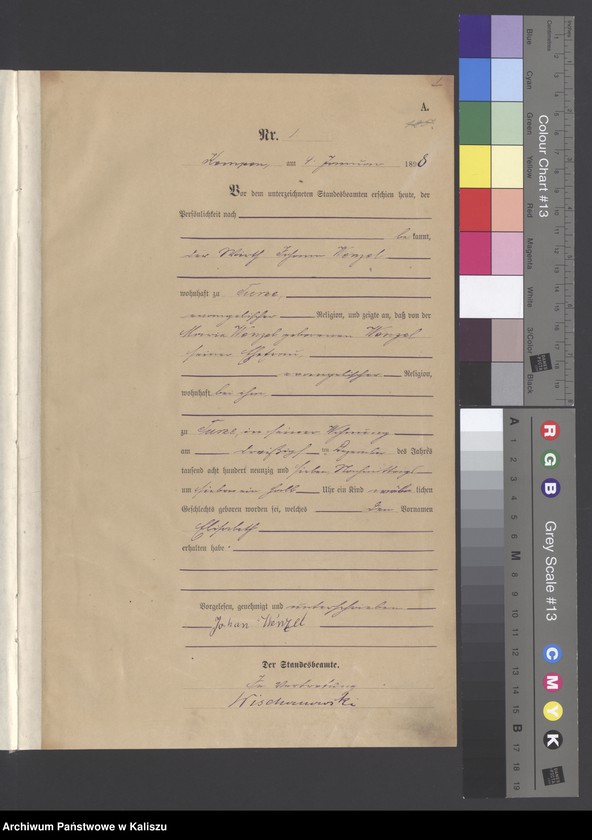 A.
Nr. 1
Kempen, am 4. Januar 1898
Vor dem unterzeichneten Standesbeamten erschien heute, der
Persönlichkeit nach
bekannt,
der Wirth Johann Wenzel
wohnhaft zu Turze,
evangelischer Religion, und zeigte an, daß von der
Maria Wenzel geborenen Wenzel
seiner Ehefrau,
evangelischer Religion,
wohnhaft bei ihm,
zu Turze, in seiner Wohnung
am dreißigsten Dezember des Jahres
tausend acht hundert neunzig und sieben Nachmittags
um sieben ein halb Uhr ein Kind weiblichen
Geschlechts geboren worden sei, welches den Vornamen
Elisabeth
erhalten habe.
Vorgelesen, genehmigt und unterschrieben
Johan Wenzel
Der Standesbeamte.
In Vertretung
Wischanowski
Colour Chart #13
Blue
Cyan
Green
Yellow
Red
Magenta
White
3/Color
Black
Centimetres
Inches
Grey Scale #13
R
G
B
C
M
Y
K
A 1 2 3 4 5 6 M 8 9 10 11 12 13 14 15 B 17 18 19
Archiwum Państwowe w Kaliszu